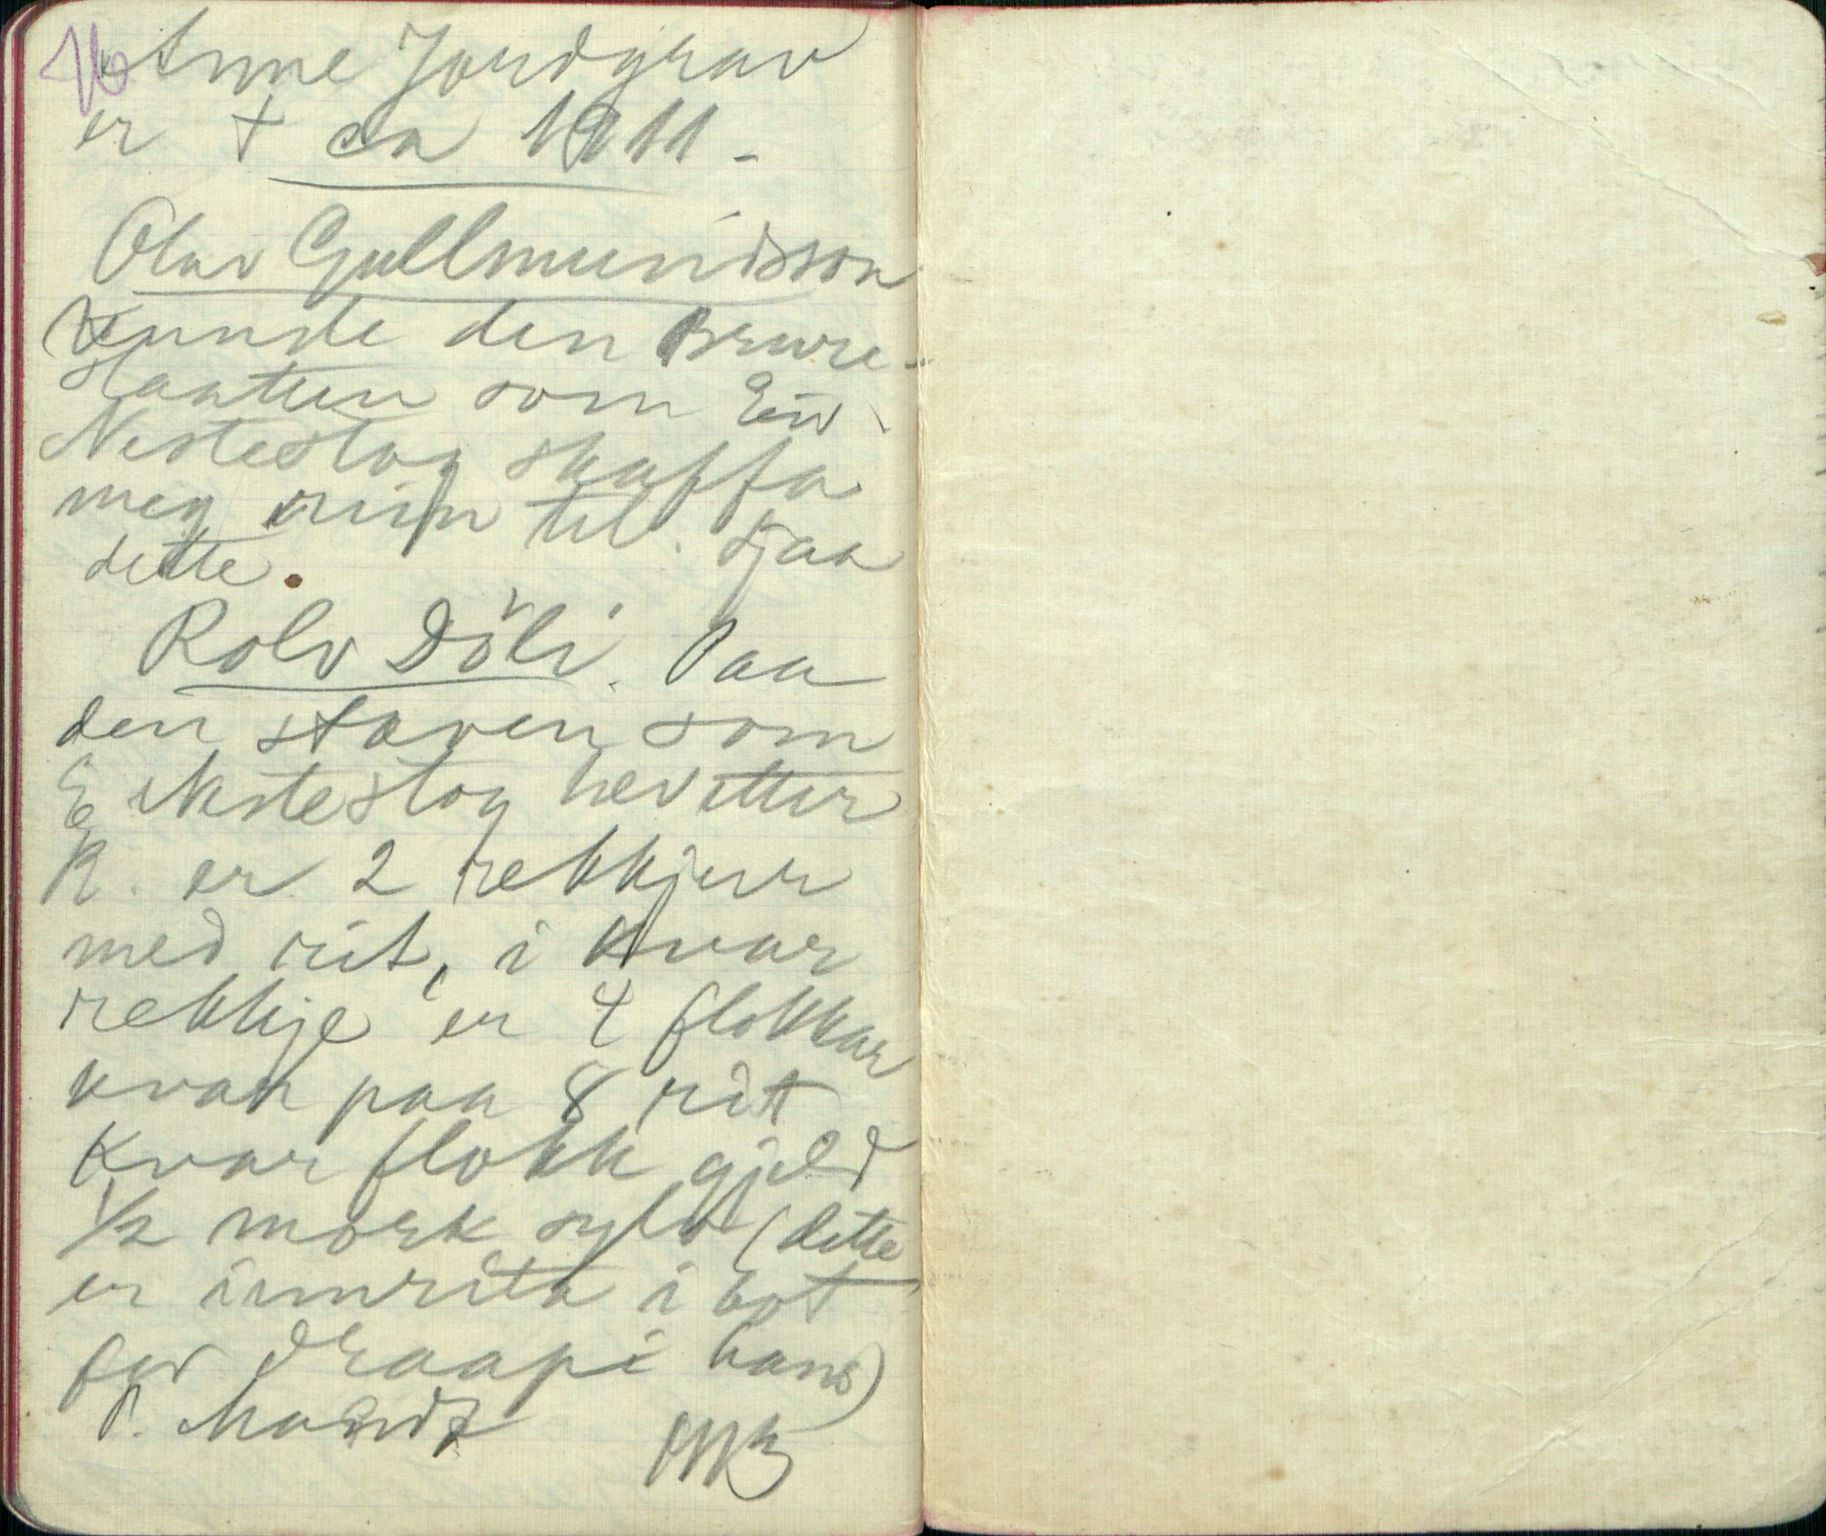 76
Anne Jordgrav
er + ca 1911 -
Olav Gullmundsson
Kunde den Brure-
slaatten som Eiv.
Nesteslog skaffa
meg inn til. Sjaa
dette.
Rolv Döli. Paa
den staven som
E Nesteslog hev etter
R. er 2 rekkjur
med rit, i kvar
rekkje er 4 flokkar
kvar paa 8 rit
Kvar flokk gjeld
1/2 mork sylv (dette
er innrita i bot
for draapi hans)
P. Mandt